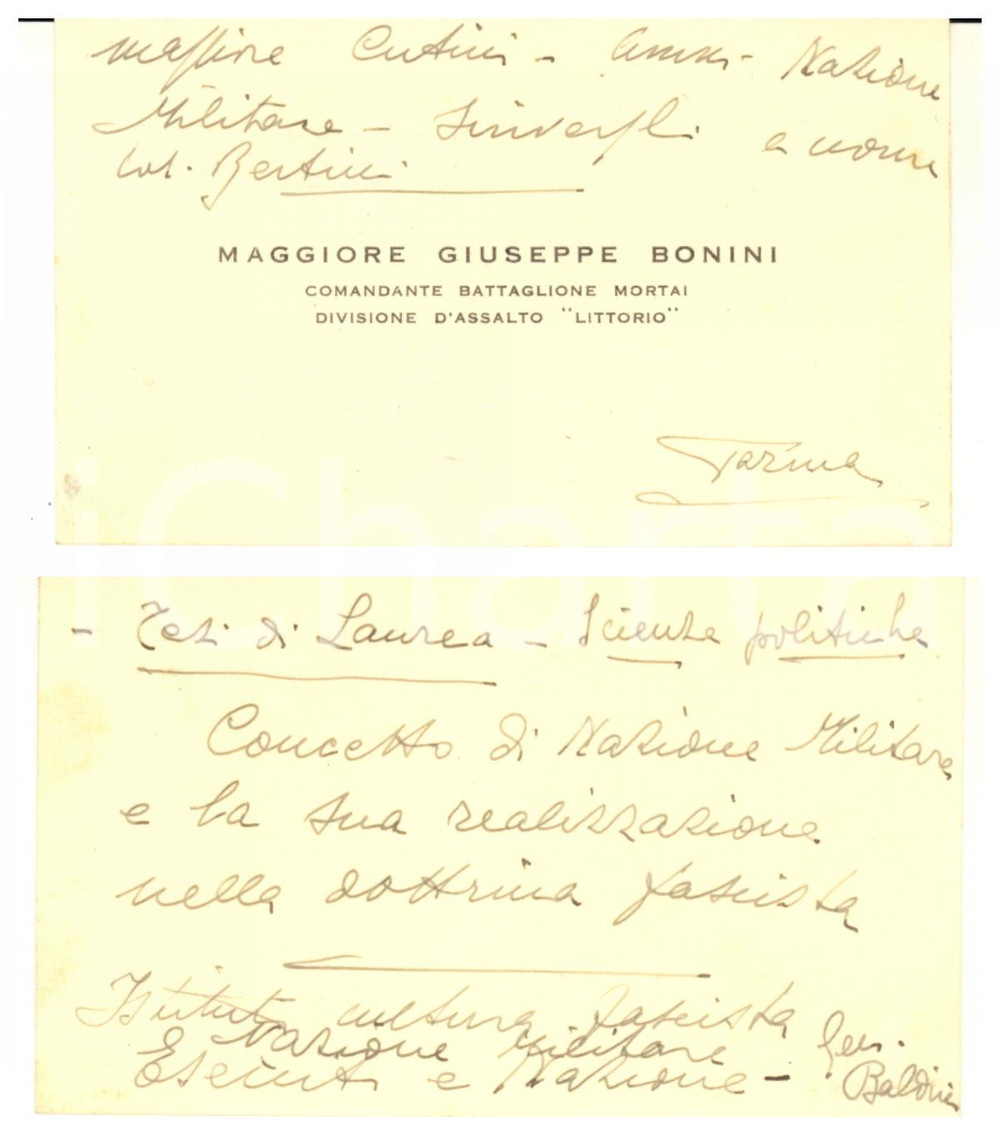 maggiore Cutini - Amm. Nazione
Militare - a nome
Col. Bertini
MAGGIORE GIUSEPPE BONINI
COMANDANTE BATTAGLIONE MORTAI
DIVISIONE D'ASSALTO "LITTORIO"
Parma
iCharta
- Tesi di Laurea - Scienze politiche
Concetto di Nazione Militare
e la sua realizzazione
nella dottrina fascista
Istituto cultura fascista
Nazione Militare Gen.
Esercito e Nazione - Baldini